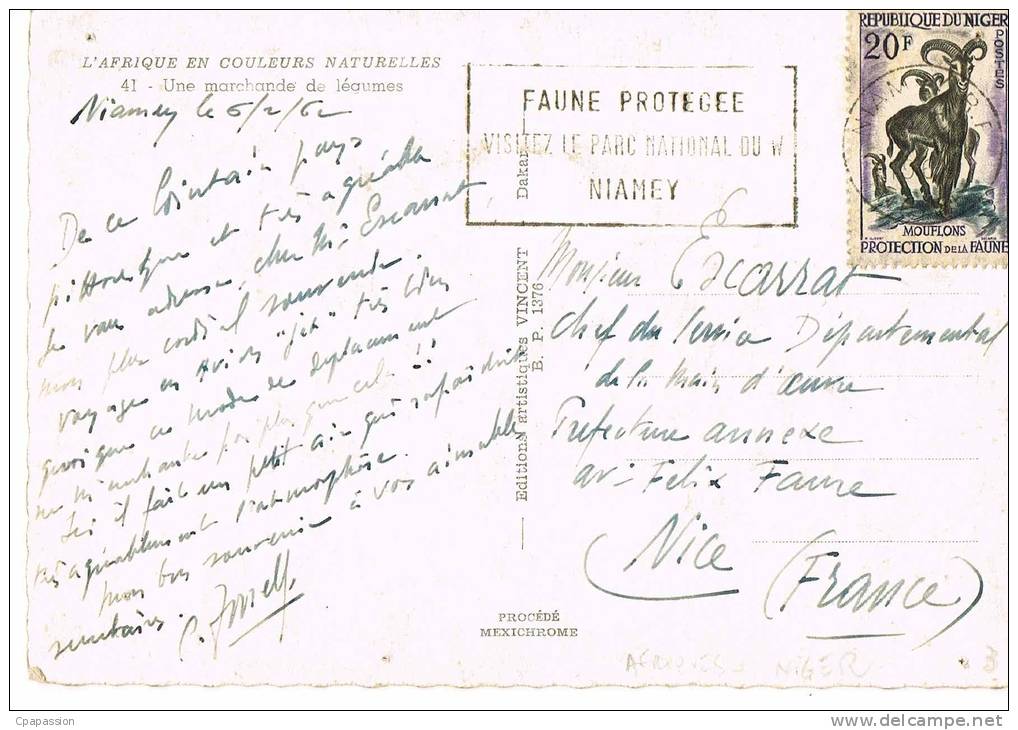 L'AFRIQUE EN COULEURS NATURELLES
41 - Une marchande de légumes
Niamey le 6/2/62
De ce lointain pays
pittoresque et très agréable
je vous adresse, cher Mr Escarrat
mon plus cordial souvenir.
Voyage en avion "jet" très bien
quoique ce mode de déplacement
ne m'enchante pas plus que cela !!
Ici il fait un petit air qui rafraîchit
très agréablement l'atmosphère.
mon bon souvenir à vos aimable
secrétaires.
FAUNE PROTEGEE
VISITEZ LE PARC NATIONAL DU W
NIAMEY
REPUBLIQUE DU NIGER
20F
POSTES
MOUFLONS
PROTECTION DE LA FAUNE
Editions artistiques VINCENT Dakar
E. P. 1376
Monsieur Escarrat
Chef du Service Départemental
de la Main d'œuvre
Prefecture annexe
av. Félix Faure
Nice
(France)
PROCÉDÉ
MEXICHROME
AFRIQUES - NIGER
3
Cpapassion
www.delcampe.net